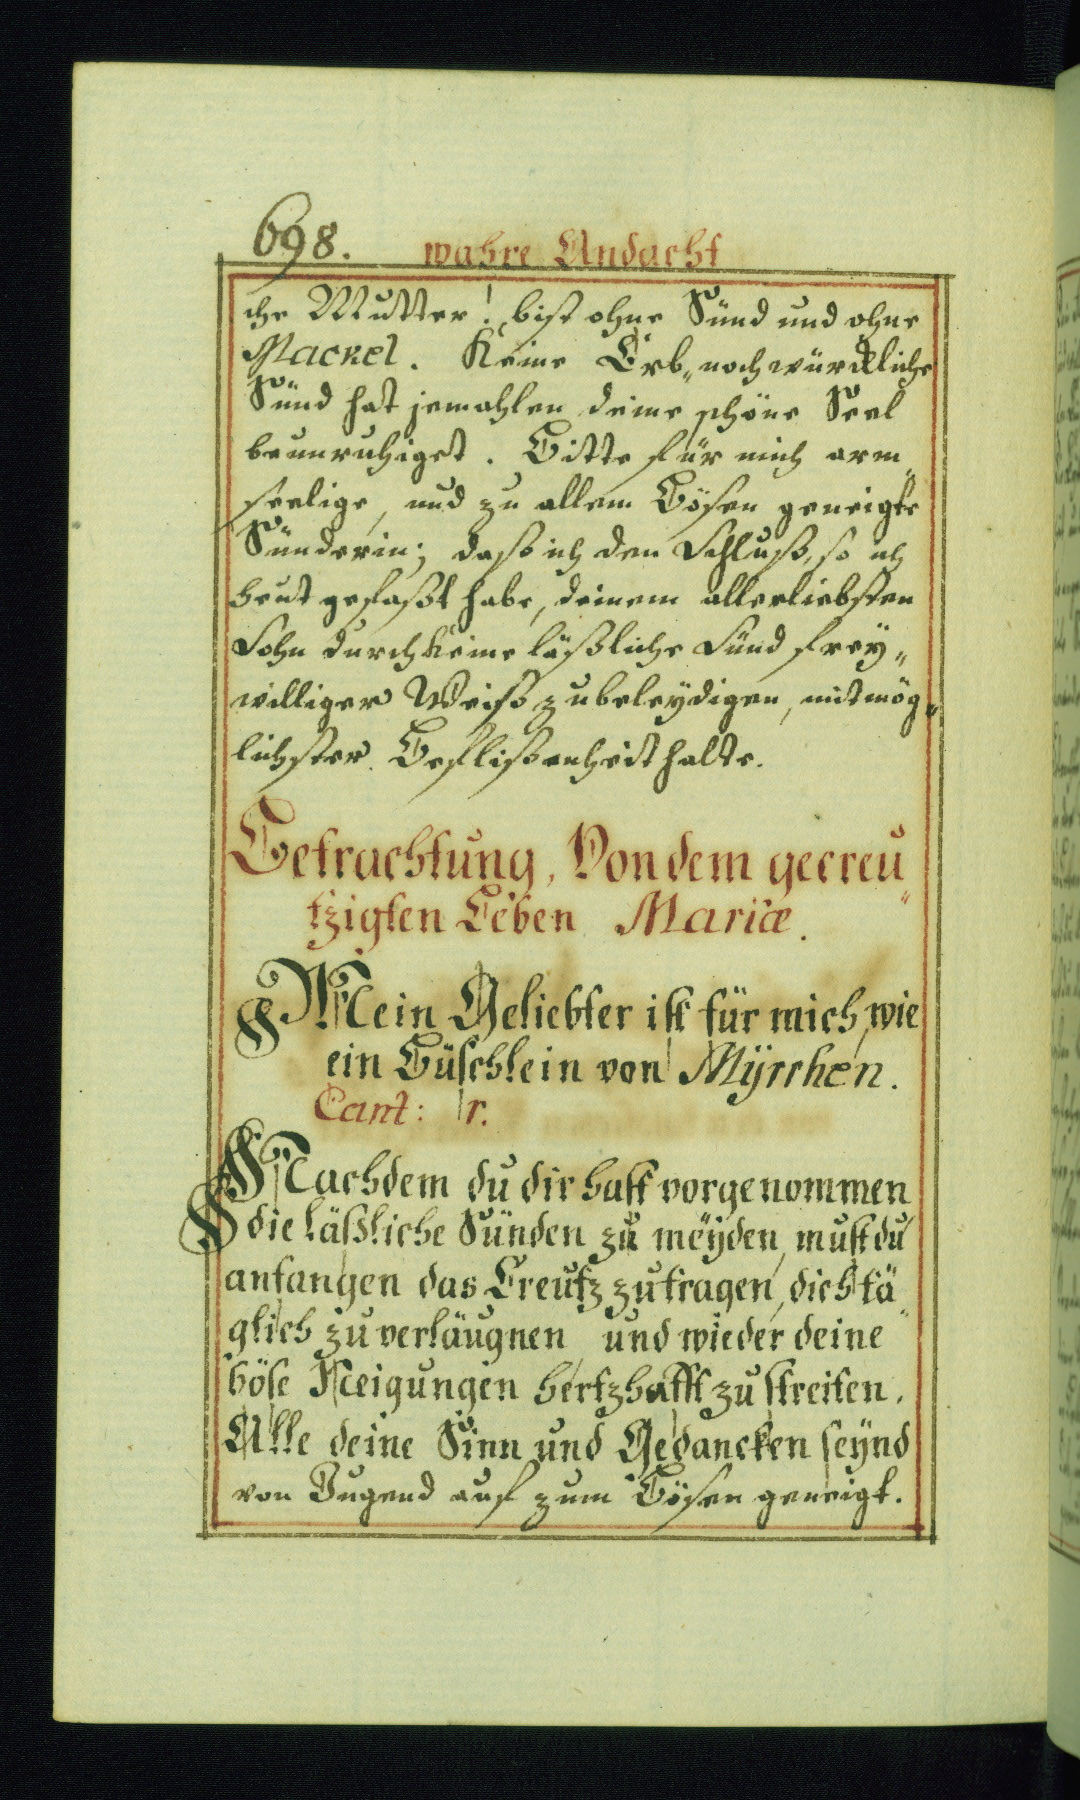 698. wahre Andacht
che Mutter! bist ohne Sünd und ohne
Mackel. Keine Erb„ noch würckliche
Sünd hat jemahlen deine schöne Seel
beunruhiget. Bitte für mich arm„
seelige, und zu allem Bösen geneigte
Sünderin; daß ich den Schluß, so ich
heut gefaßt habe, deinem allerliebsten
Sohn durch keine läßliche Sünd frey„
williger Weiß zu beleydigen, mit mög„
lichster Beflißenheit halte.
Betrachtung, Von dem gecreu„
tzigten Leben Mariæ.
Mein Geliebter ist für mich, wie
ein Büschlein von Mÿrrhen.
Cant: 1.
Nachdem du dir hast vorgenommen
die läßliche Sünden zu meÿden, must du
anfangen das Creutz zu tragen, dich tä„
glich zu verläugnen und wieder deine
böse Neigungen hertzhafft zu streiten.
Alle deine Sinn und Gedancken seÿnd
von Jugend auf zum Bösen geneigt.